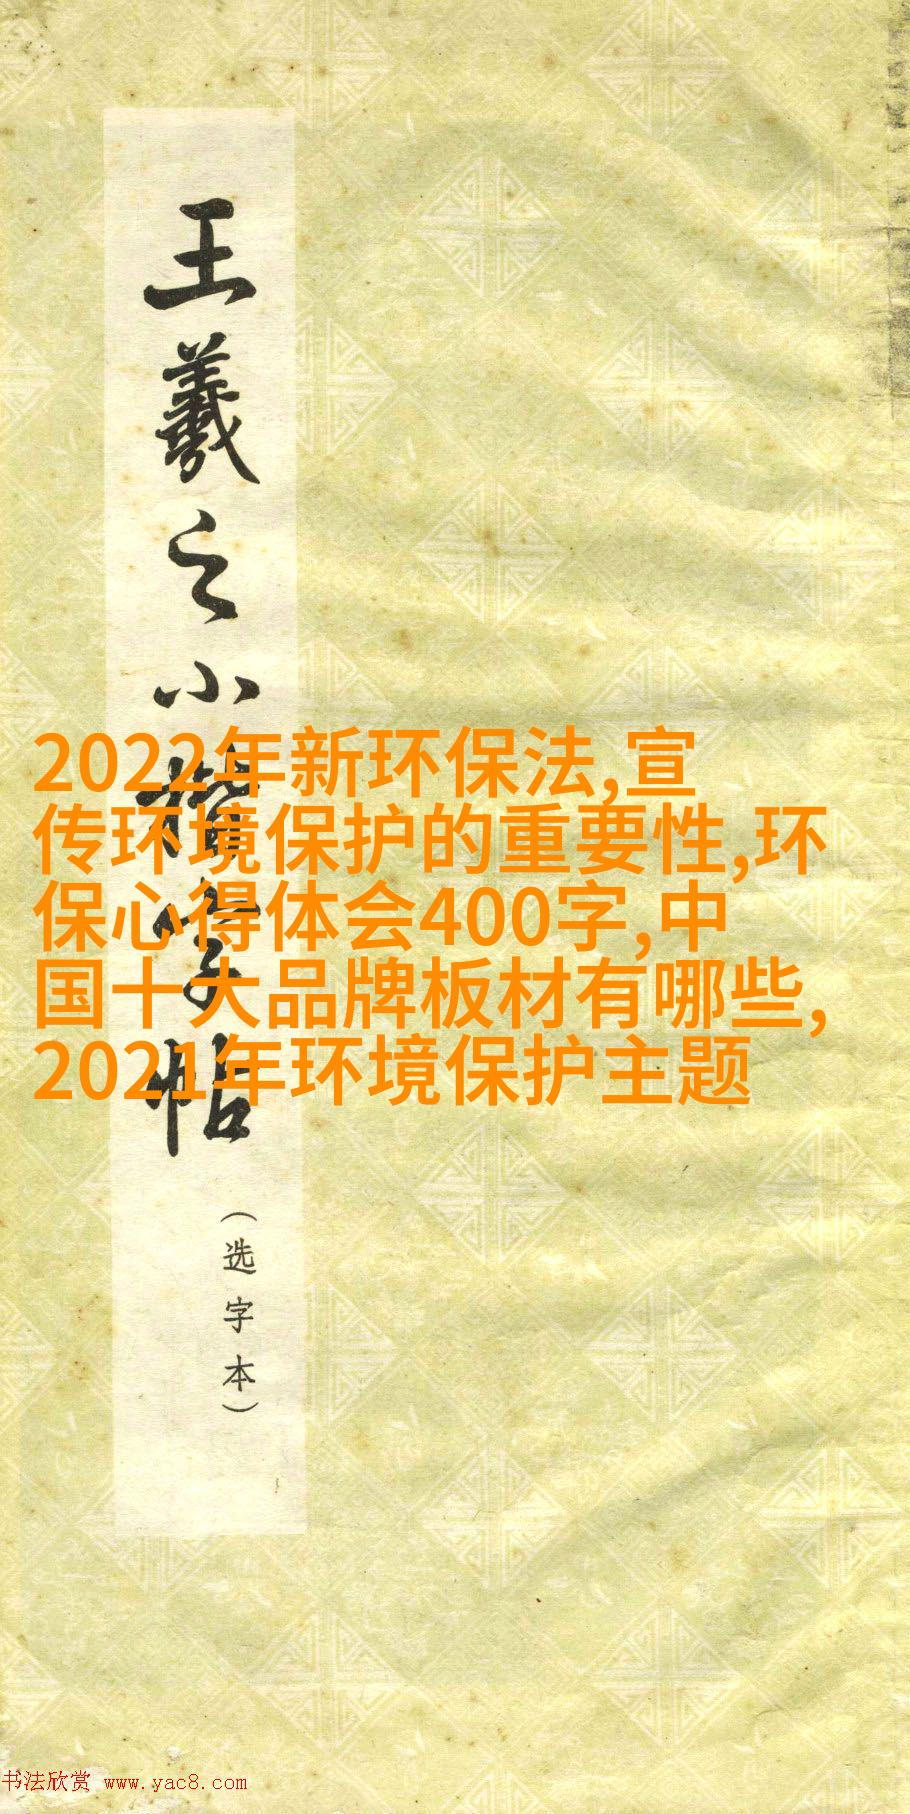 王羲之小楷字帖
(选字本)
2022年新环保法,宣
传环境保护的重要性,环
保心得体会400字,中
国十大品牌板材有哪些,
2021年环境保护主题
书法欣赏 www.yac8.com